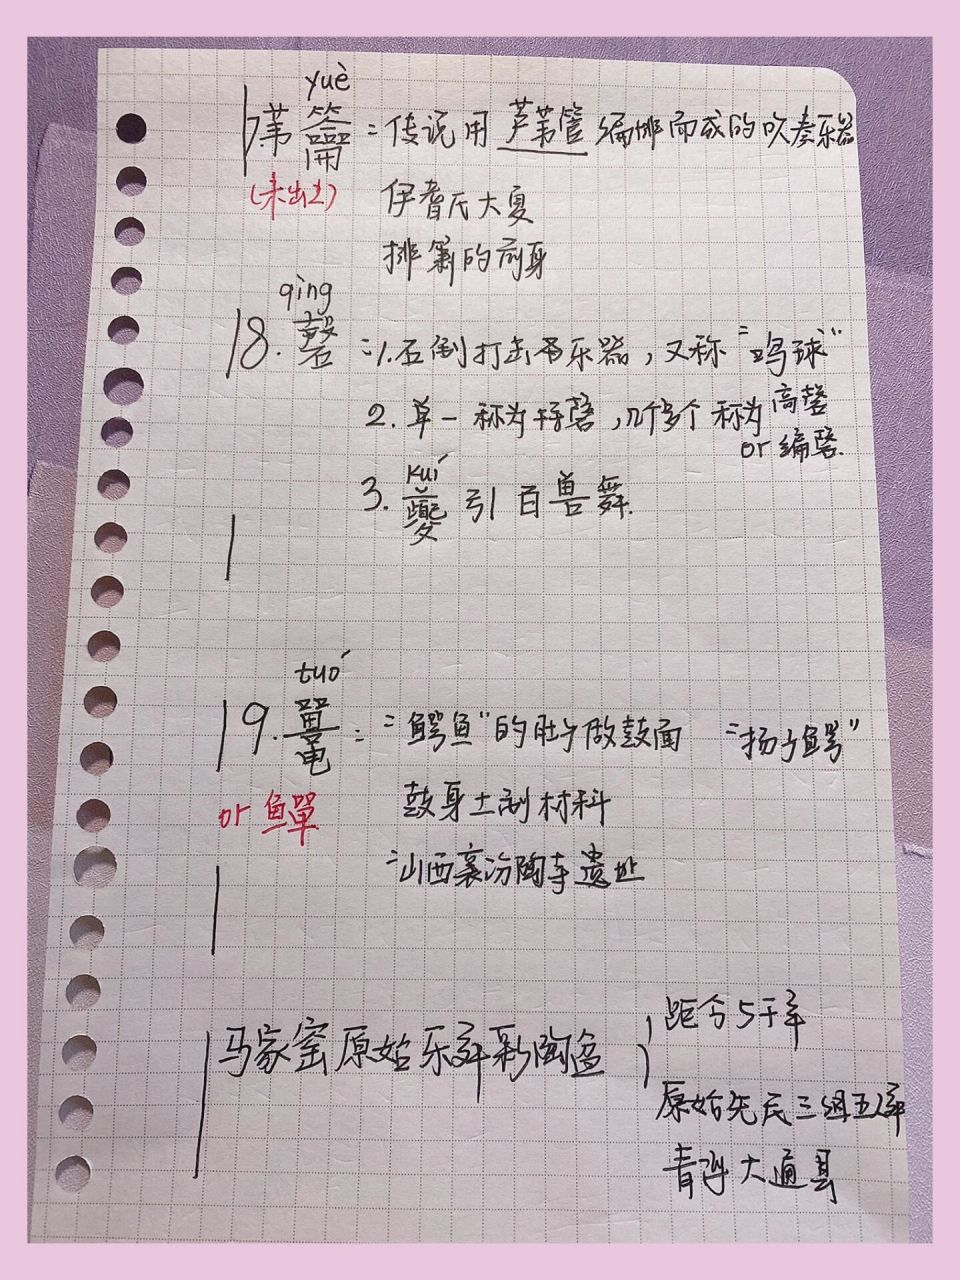 yuè
17苇籥：传说用芦苇管编排而成的吹奏乐器
(未出土) 伊耆氏大夏
排箫的前身
qìng
18.磬：1.石制打击乐器，又称"鸣球"
2.单一称为特磬，几个多个称为离磬
or编磬.
kuí
3.夔引百兽舞.
tuó
19.鼍："鳄鱼"的肚子做鼓面 "扬子鳄"
or 鱓 鼓身土制材料
山西襄汾陶寺遗址
马家窑原始乐舞彩陶盆
距今5千年
原始先民三组五人舞
青海大通县